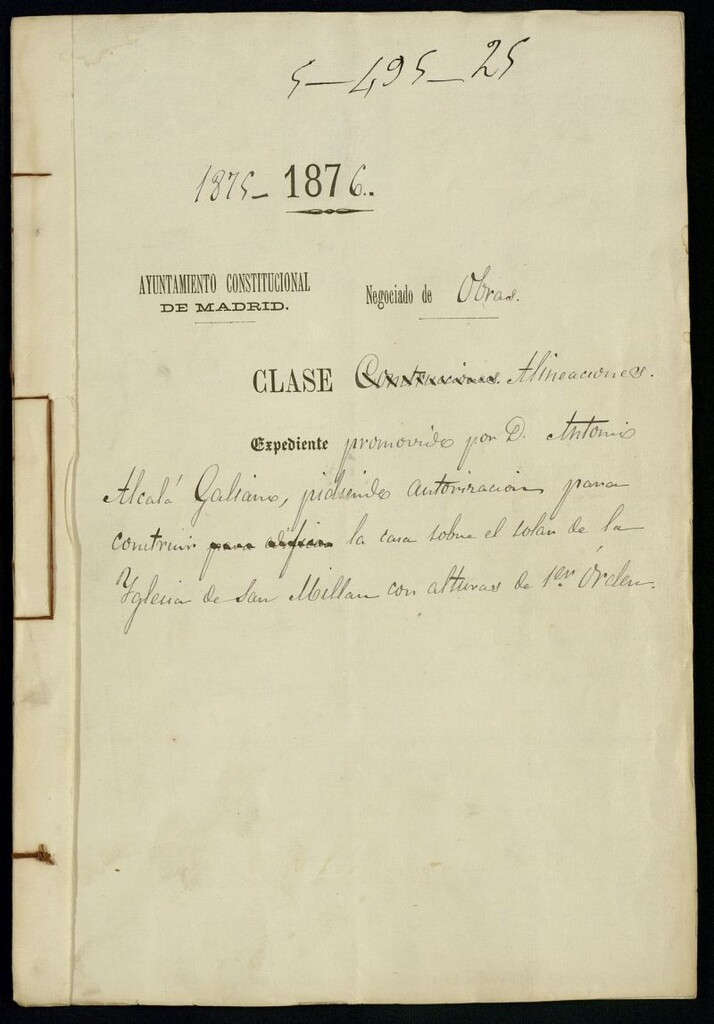 5-495-25
1875- 1876.
AYUNTAMIENTO CONSTITUCIONAL
DE MADRID.
Negociado de Obras.
CLASE Construcciones Alineaciones.
Expediente promovido por D. Antonio
Alcalá Galiano, pidiendo autorizacion para
construir para la casa sobre el solar de la
Yglesia de San Millan con alturas de 1er Órden.